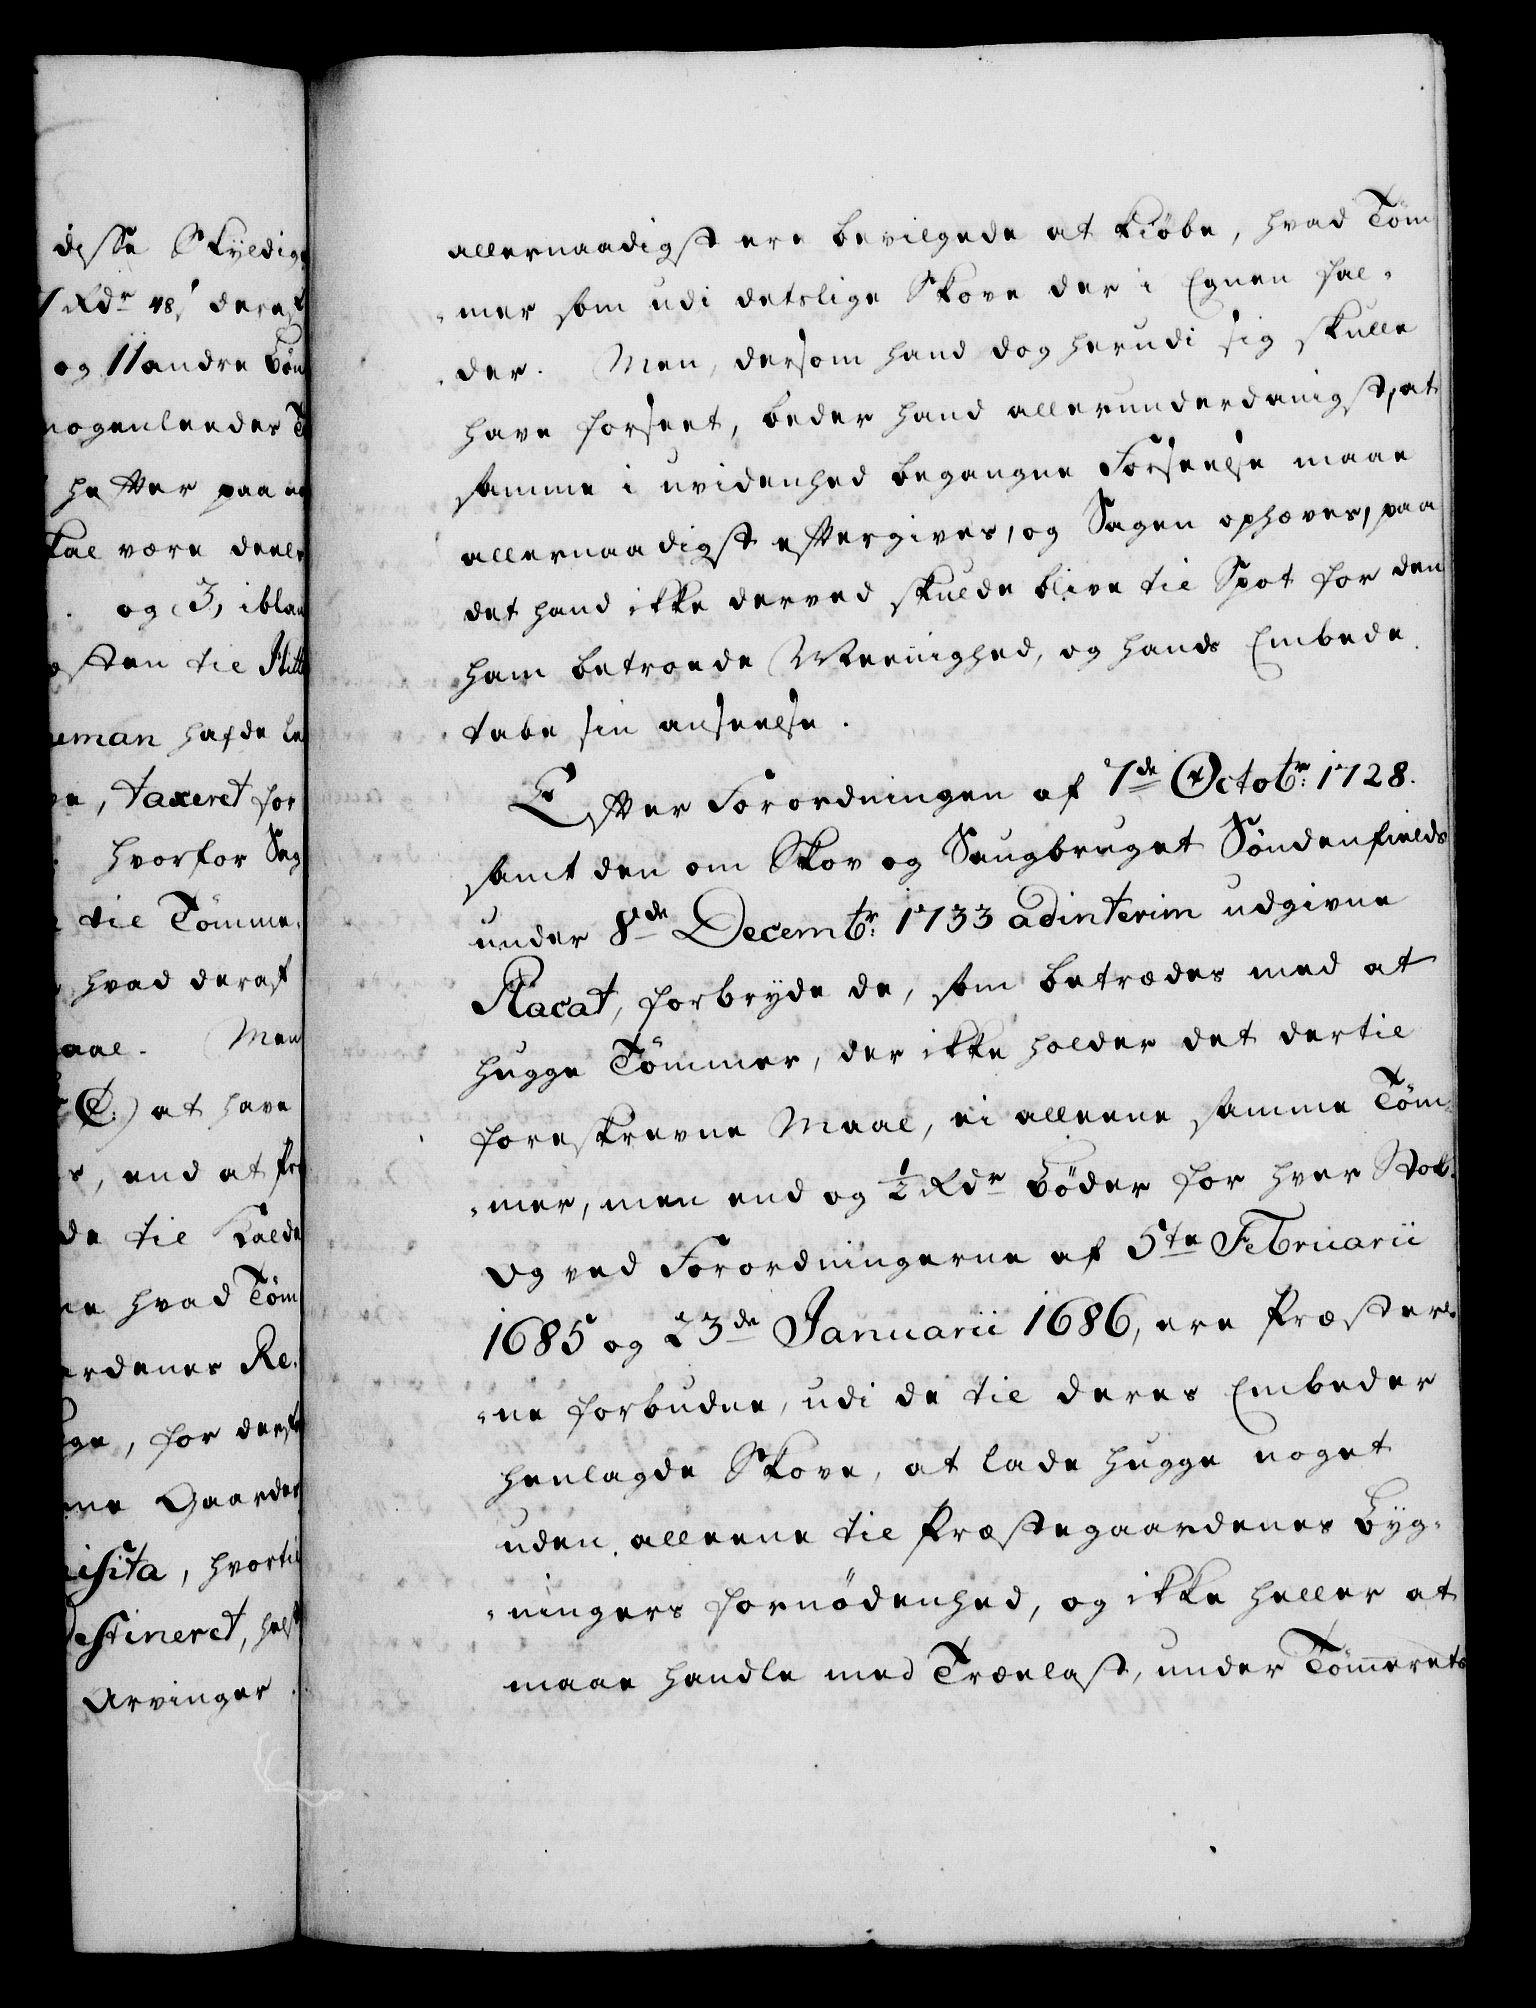 disse Skyldig
7 Rdr 48 s deraf
og 11 andre Bön
nogenleedes T
hefter paa no
kal være deele
og 3, iblan
osten til Hitt
eman hafde le
ve, taxeret for
hvorfor Sag
til Tömme
hvad deraf
aal. Men
C.) at have
s, end at Pr
de til Kalde
ne hvad Töm
ardenes Re
ge, for ders
ne Gaardes
isita, hvortil
estineret, helst
Arvinger
allernaadigst ere bevilgede at kiöbe, hvad Töm
mer som udi detslige Skove der i Egnen fal-
der. Men, dersom hand dog herudi sig skulle
have forseet, beder hand allerunderdanigst, at
samme i uvidenhed begangne Forseelse maae
allernaadigst eftergives, og Sagen ophæves, paa
det hand ikke derved skulde blive til Spot for den
ham betroede Meenighed, og hands Embede
tabe sin anseelse.
Efter Forordningen af 7de Octobr: 1728.
samt den om Skov og Saugbruget Söndenfields
under 8de Decembr: 1733 ad interim udgivne
Placat, forbryde de, som betrædes med at
hugge Tömmer, der ikke holder det dertil
foreskrevne Maal, ei alleene samme Töm-
mer, men end og ½ Rdr Böder for hver Stok.
Og ved Forordningerne af 5te Februarii
1685 og 23de Januarii 1686, ere Præster-
ne forbudne, udi de til deres Embeder
henlagde Skove, at lade hugge noget
uden alleene til Præstegaardenes Byg-
ningers fornödenhed, og ikke heller at
maae handle med Trælast, under Tömmerets